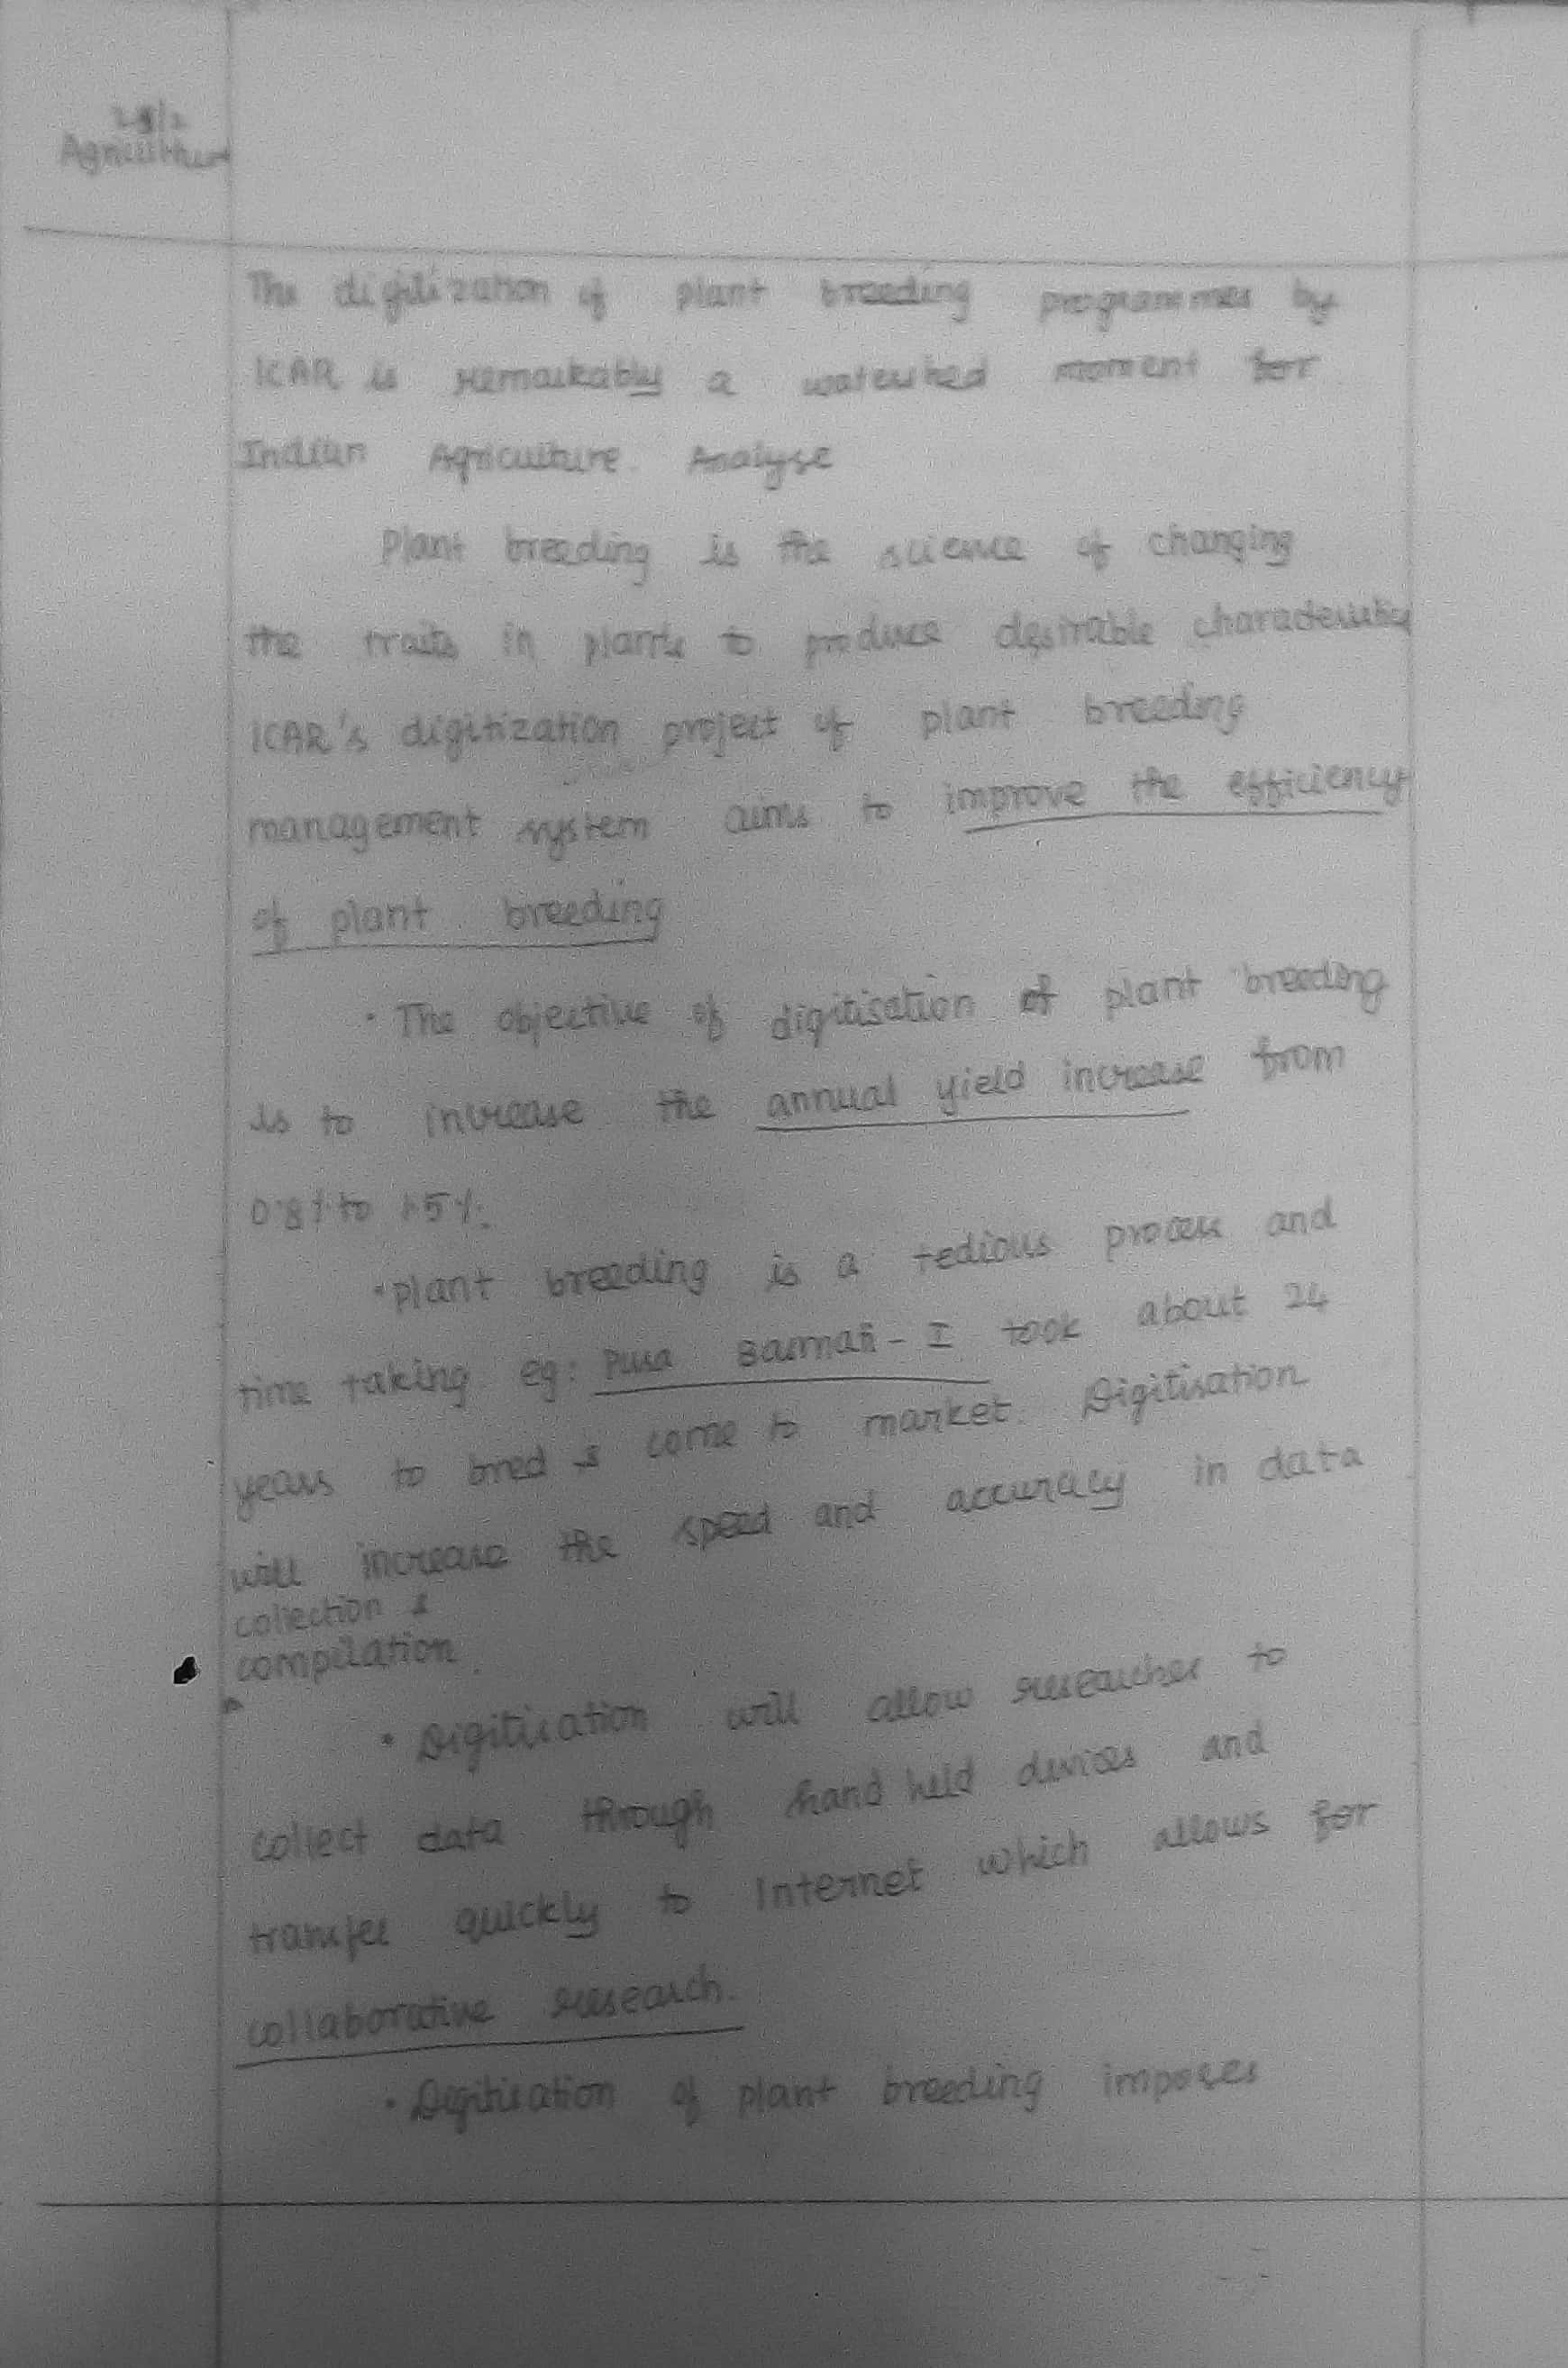 28/2
Agriculture
The digitization of plant breeding programmes by
ICAR is remarkably a watershed moment for
Indian Agriculture. Analyse
Plant breeding is the science of changing
the traits in plants to produce desirable characteristics
ICAR's digitization project of plant breeding
management system aims to improve the efficiency
of plant breeding
• The objective of digitisation of plant breeding
is to increase the annual yield increase from
0.8% to 1.5%.
• Plant breeding is a tedious process and
time taking eg: Pusa Basmati - I took about 24
years to bred & come to market. Digitisation
will increase the speed and accuracy in data
collection &
compilation.
• Digitisation will allow researcher to
collect data through hand held devices and
transfer quickly to Internet which allows for
collaborative research.
• Digitisation of plant breeding imposes